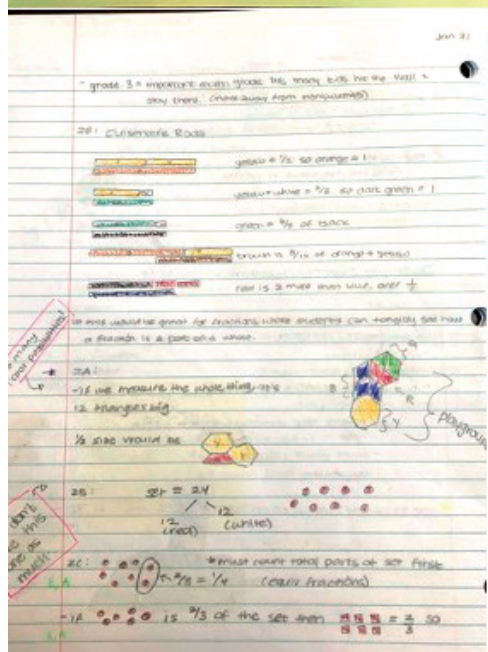 Jan 31
- grade 3 = important math grade bc many kids hit the wall +
stay there. (move away from manipulatives)
2B: Cuisenaire Rods
yellow = 1/2 so orange = 1
so dark green = 1
green = of black
brown is of orange + yellow
red is 2 more than blue, over
this would be great for fractions where students can tangibly see how
a fraction is a part of a whole.
many
cool possibilities!
* 2A:
- if we measure the whole thing, it's
12 triangles big
1/2 size would be
G
B
R
Y
playground
2B: set = 24
12 12
(red) (white)
don't
this
one as
much
2C: *must count total parts of set first
2/8 = 1/4 (equiv fractions)
E, A
- if is 2/3 of the set then = 2/3 so
E, A